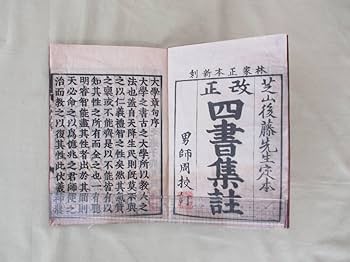 林家正本新刻
芝山後藤先生定本
改正
四書集註
男師周校
大學章句序
大學之書古之大學所以教人之
法也蓋自天降生民則既莫不與
之以仁義禮智之性矣然其氣質
之稟或不能齊是以不能皆有以
知其性之所有而全之也一有聰
明睿智能盡其性者出於其間則
天必命之以爲億兆之君師使之
治而教之以復其性此伏羲神農